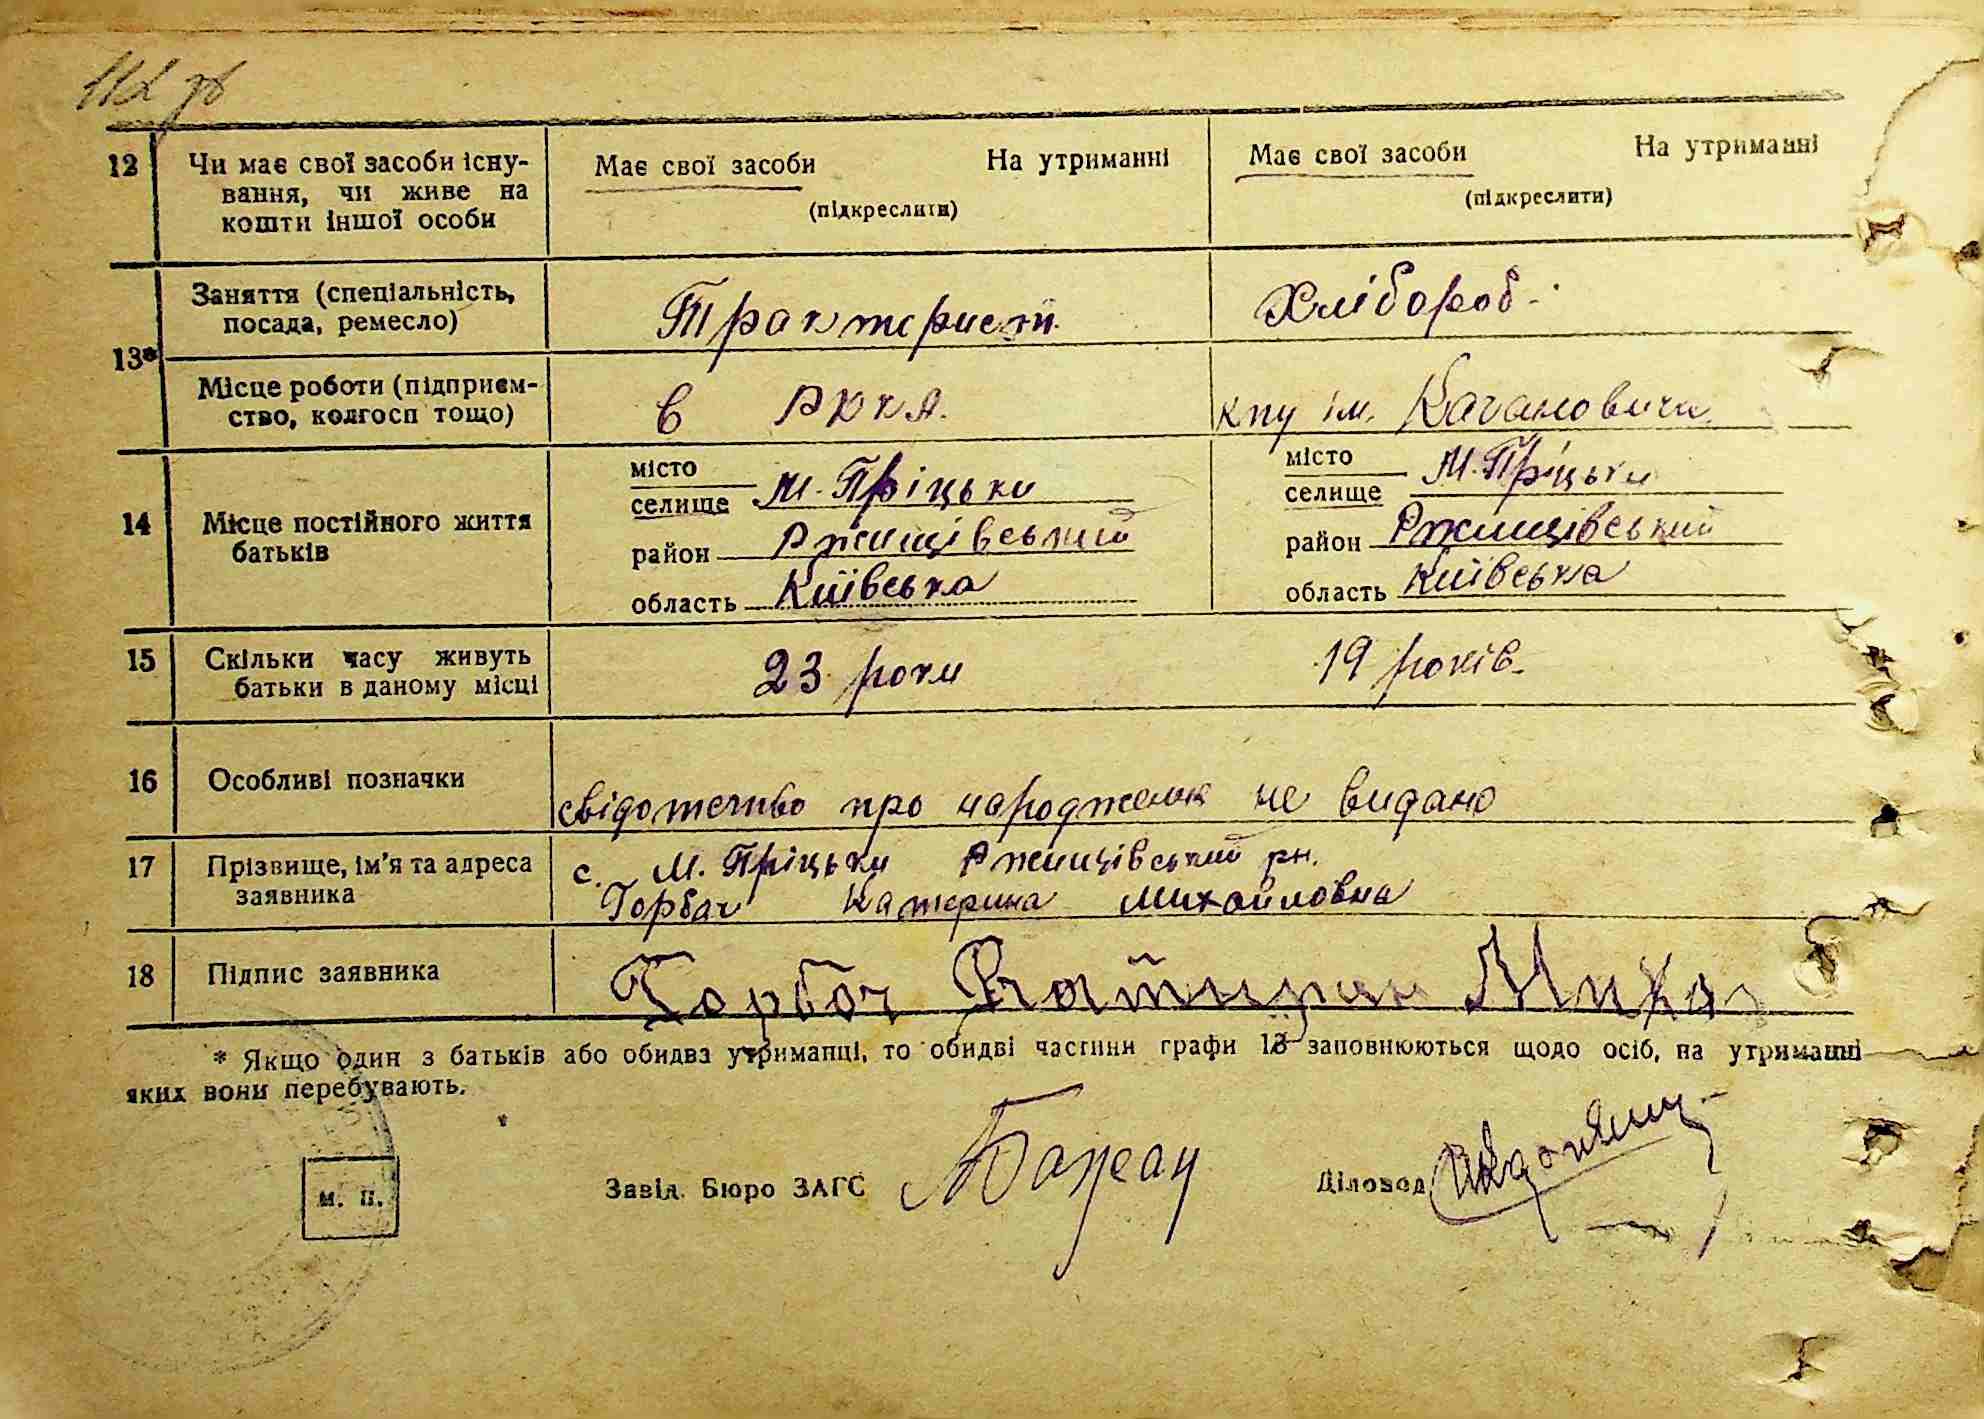 112 зв
12 Чи має свої засоби існу- Має свої засоби На утриманні Має свої засоби На утриманні
вання, чи живе на (підкреслити) (підкреслити)
кошти іншої особи
13* Заняття (спеціальність, Тракторист Хлібороб
посада, ремесло)
Місце роботи (підприєм- в РККА. кпу ім. Кагановича
ство, колгосп тощо)
14 Місце постійного життя батьків
місто М. Пріцьки місто М. Пріцьки
селище селище
район Ржищівський район Ржищівський
область Київська область Київська
15 Скільки часу живуть 23 роки 19 років.
батьки в даному місці
16 Особливі позначки свідотство про народження не видано
17 Прізвище, ім'я та адреса с. М. Пріцьки Ржищівський рн.
заявника Горбач Катерина Михайловна
18 Підпис заявника Горбач
* Якщо один з батьків або обидва утриманці, то обидві частини графи 13 заповнюються щодо осіб, на утриманні
яких вони перебувають.
м. п. Завід. Бюро ЗАГС Бажан Діловод